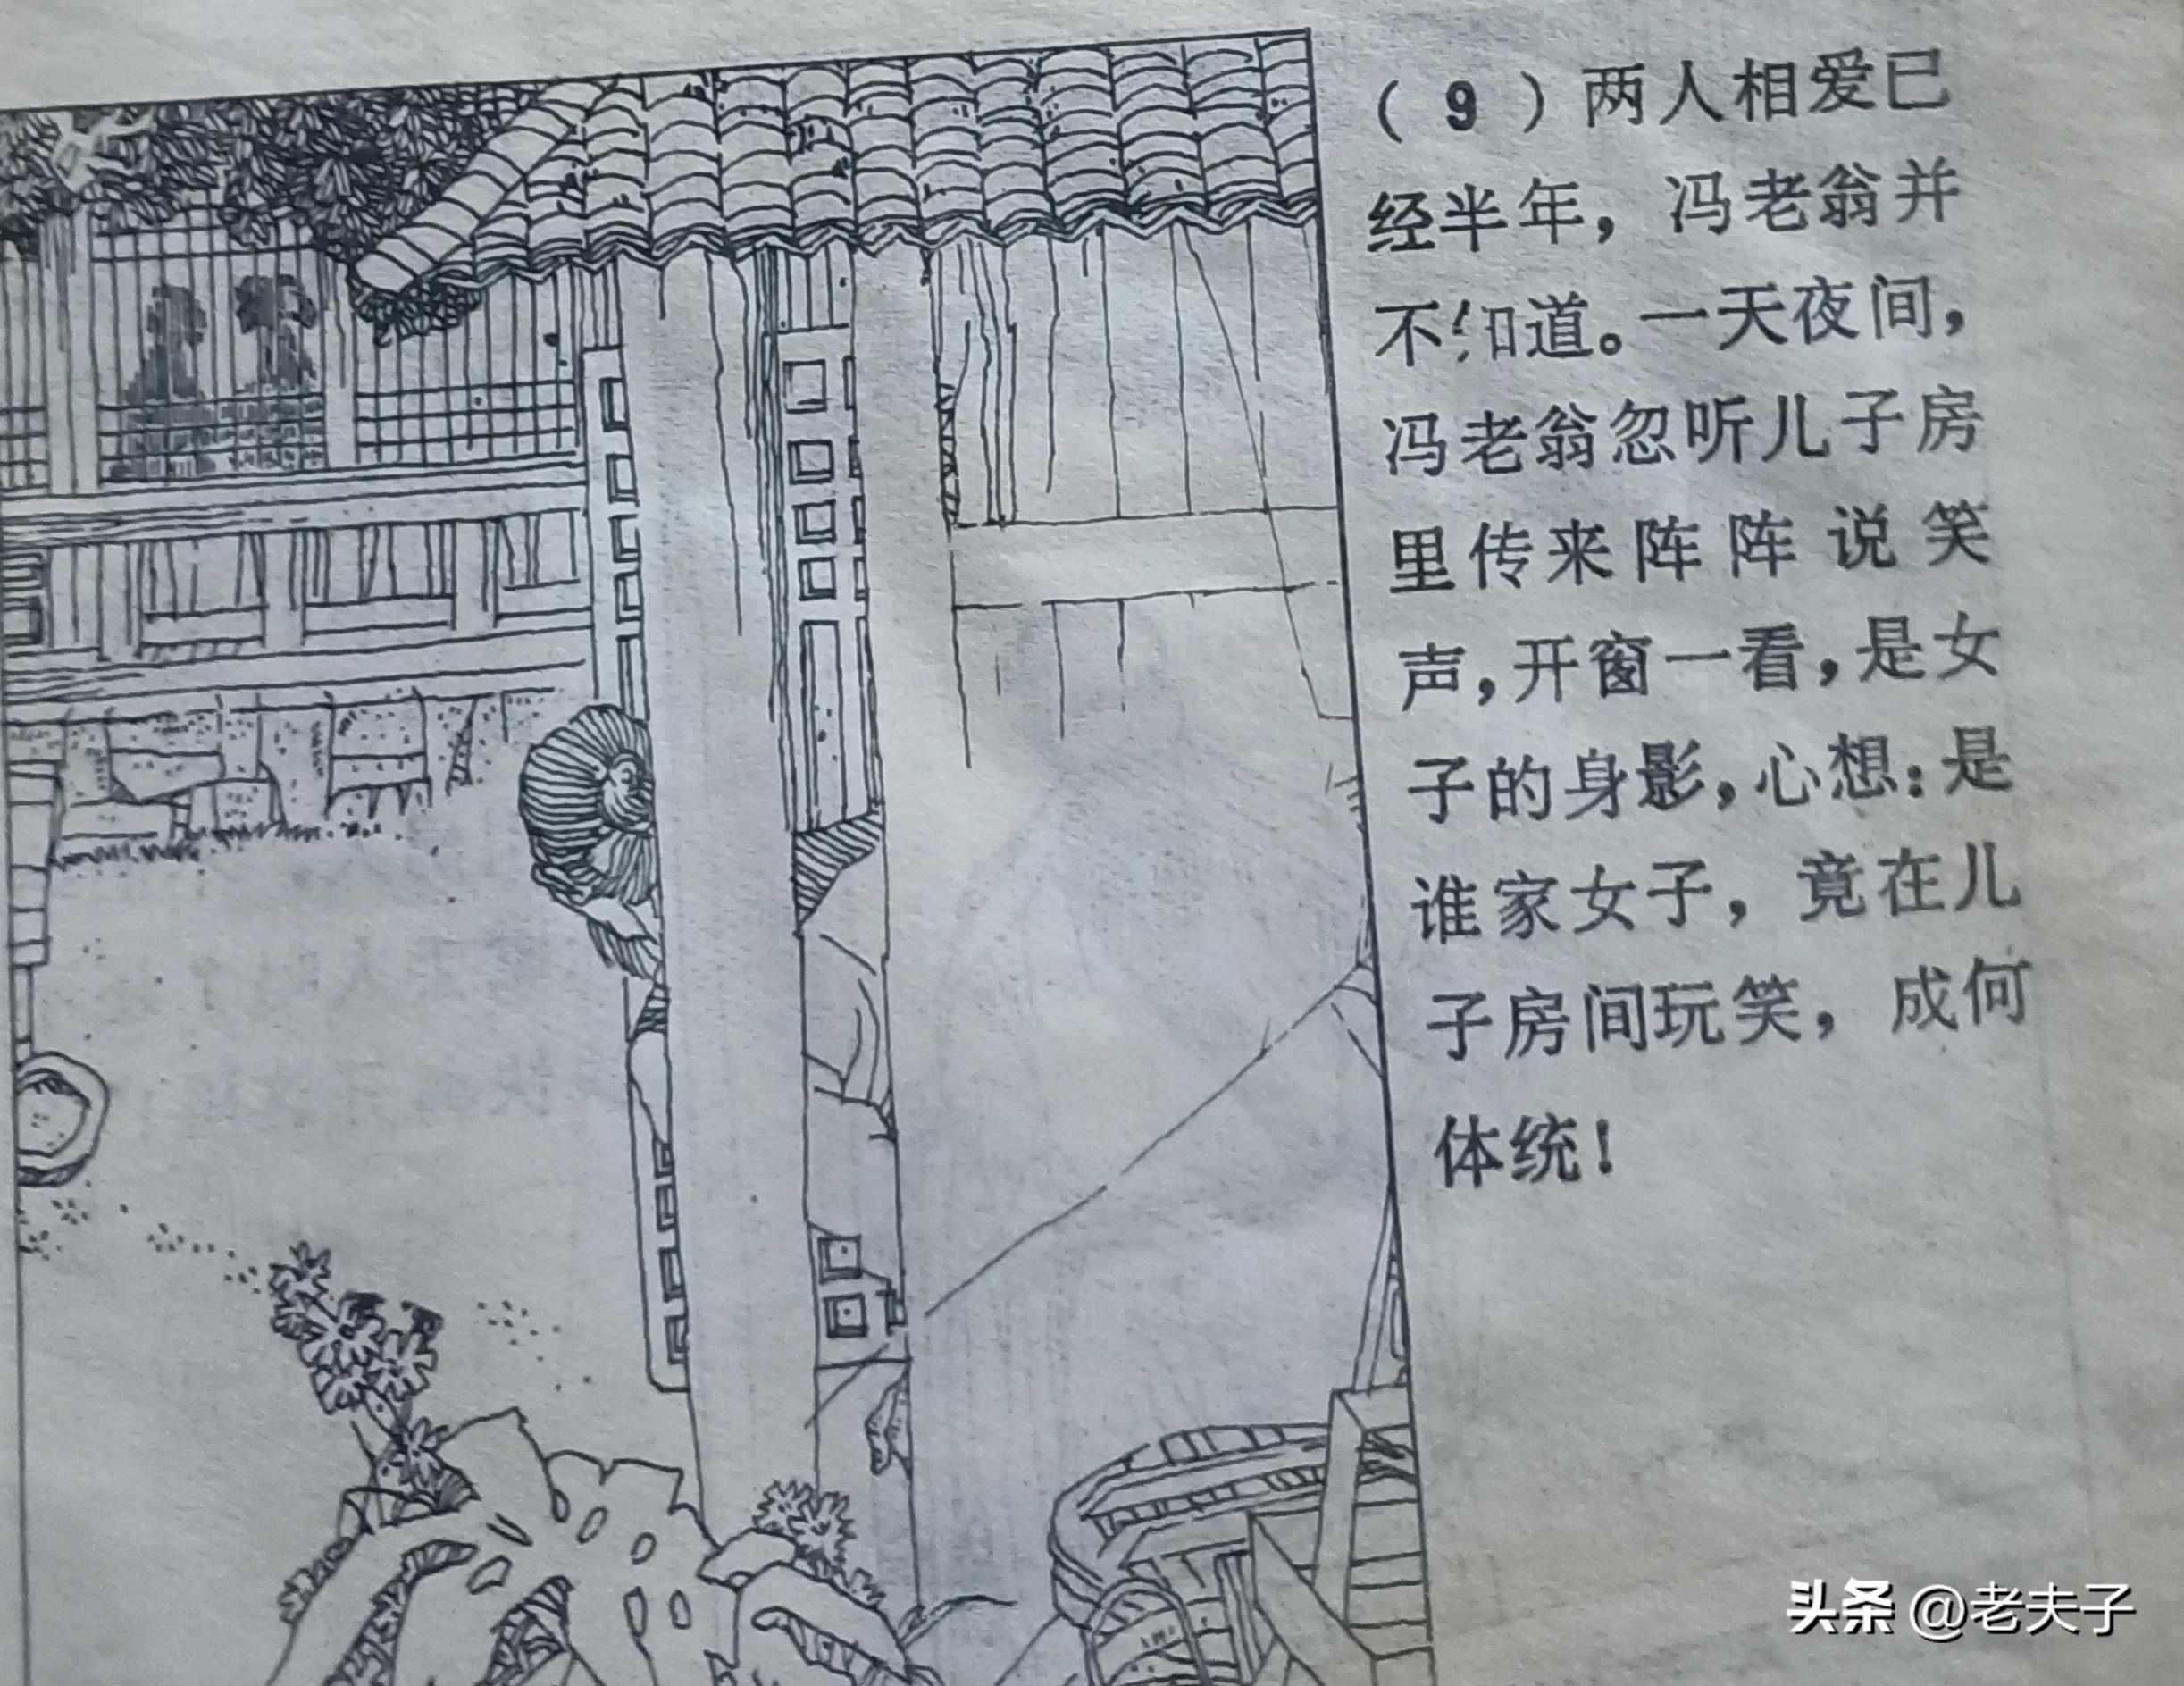 （9）两人相爱已
经半年，冯老翁并
不知道。一天夜间，
冯老翁忽听儿子房
里传来阵阵说笑
声，开窗一看，是女
子的身影，心想：是
谁家女子，竟在儿
子房间玩笑，成何
体统！
头条 @老夫子